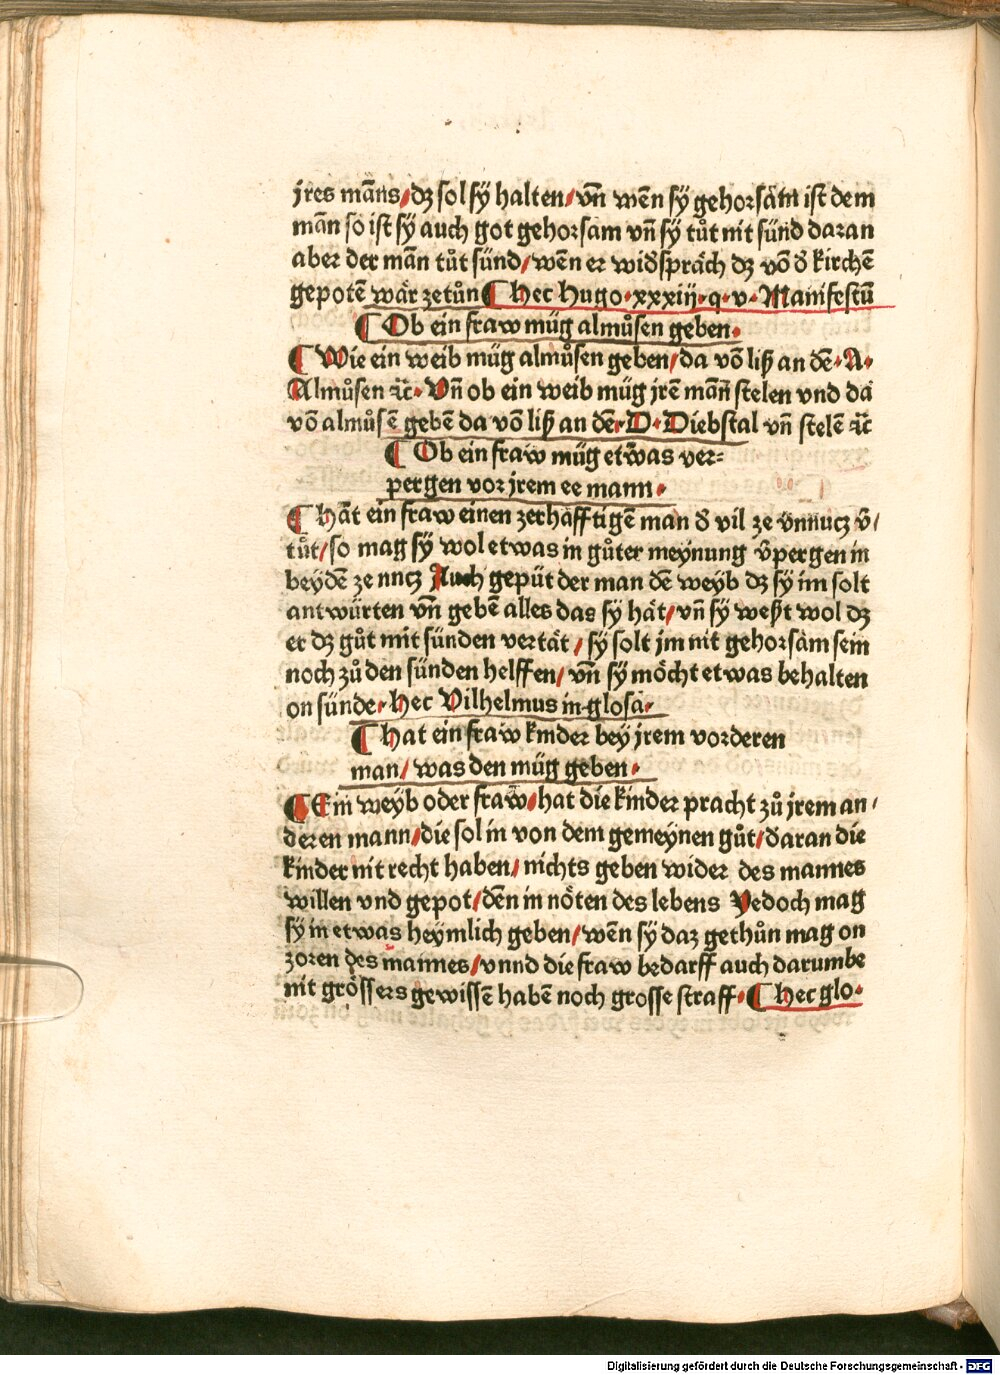 jres mãns/dz sol sÿ halten/vñ wẽn sÿ gehorsãm ist dem
mãn so ist sÿ auch got gehorsam vñ sÿ tůt nit sünd daran
aber der mãn tůt sünd/wẽn er widspräch dz võ d kirchẽ
gepotẽ wär zetůn ¶ hec Hugo·xxxiij·q·v·Manifestũ
¶ Ob ein fraw müg almůsen geben·
¶ Wie ein weib müg almůsen geben/da võ liß an dẽ·A·
Almůsen ꝛc̃· Vñ ob ein weib müg jrẽ mañ stelen vnd da
võ almůsẽ gebẽ da võ liß an dẽ·D·Diebstal vñ stelẽ ꝛc̃
¶ Ob ein fraw müg etwas ver⸗
pergen vor jrem ee mann·
¶ hãt ein fraw einen zerhäfftigẽ man d vil ze vnnucz ṽ/
tůt/so mag sÿ wol etwas in gůter meÿnung ṽpergen in
beÿdẽ ze nucz Auch gepüt der man dẽ weÿb dz sÿ im solt
antwürten vñ gebẽ alles das sÿ hät/vñ sÿ weßt wol dz
er dz gůt mit sünden vertät/sÿ solt jm nit gehorsãm sein
noch zů den sünden helffen/vñ sÿ möcht etwas behalten
on sünde·hec Vilhelmus in glosa·
¶ hat ein fraw kinder beÿ jrem vorderen
man/was den müg geben·
¶ Ein weÿb oder fraw/hat die kinder pracht zů jrem an/
deren mann/die sol in von dem gemeÿnen gůt/daran die
kinder nit recht haben/nichts geben wider des mannes
willen vnd gepot/dẽn in nöten des lebens Yedoch mag
sÿ in etwas heÿmlich geben/wẽn sÿ daz gethůn mag on
zoren des mannes/vnnd die fraw bedarff auch darumbe
nit grössers gewissẽ habẽ noch grosse straff·¶ hec glo·
Digitalisierung gefördert durch die Deutsche Forschungsgemeinschaft - DFG